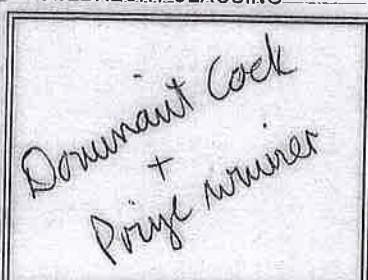 Dominant Cock
+
Prize winner